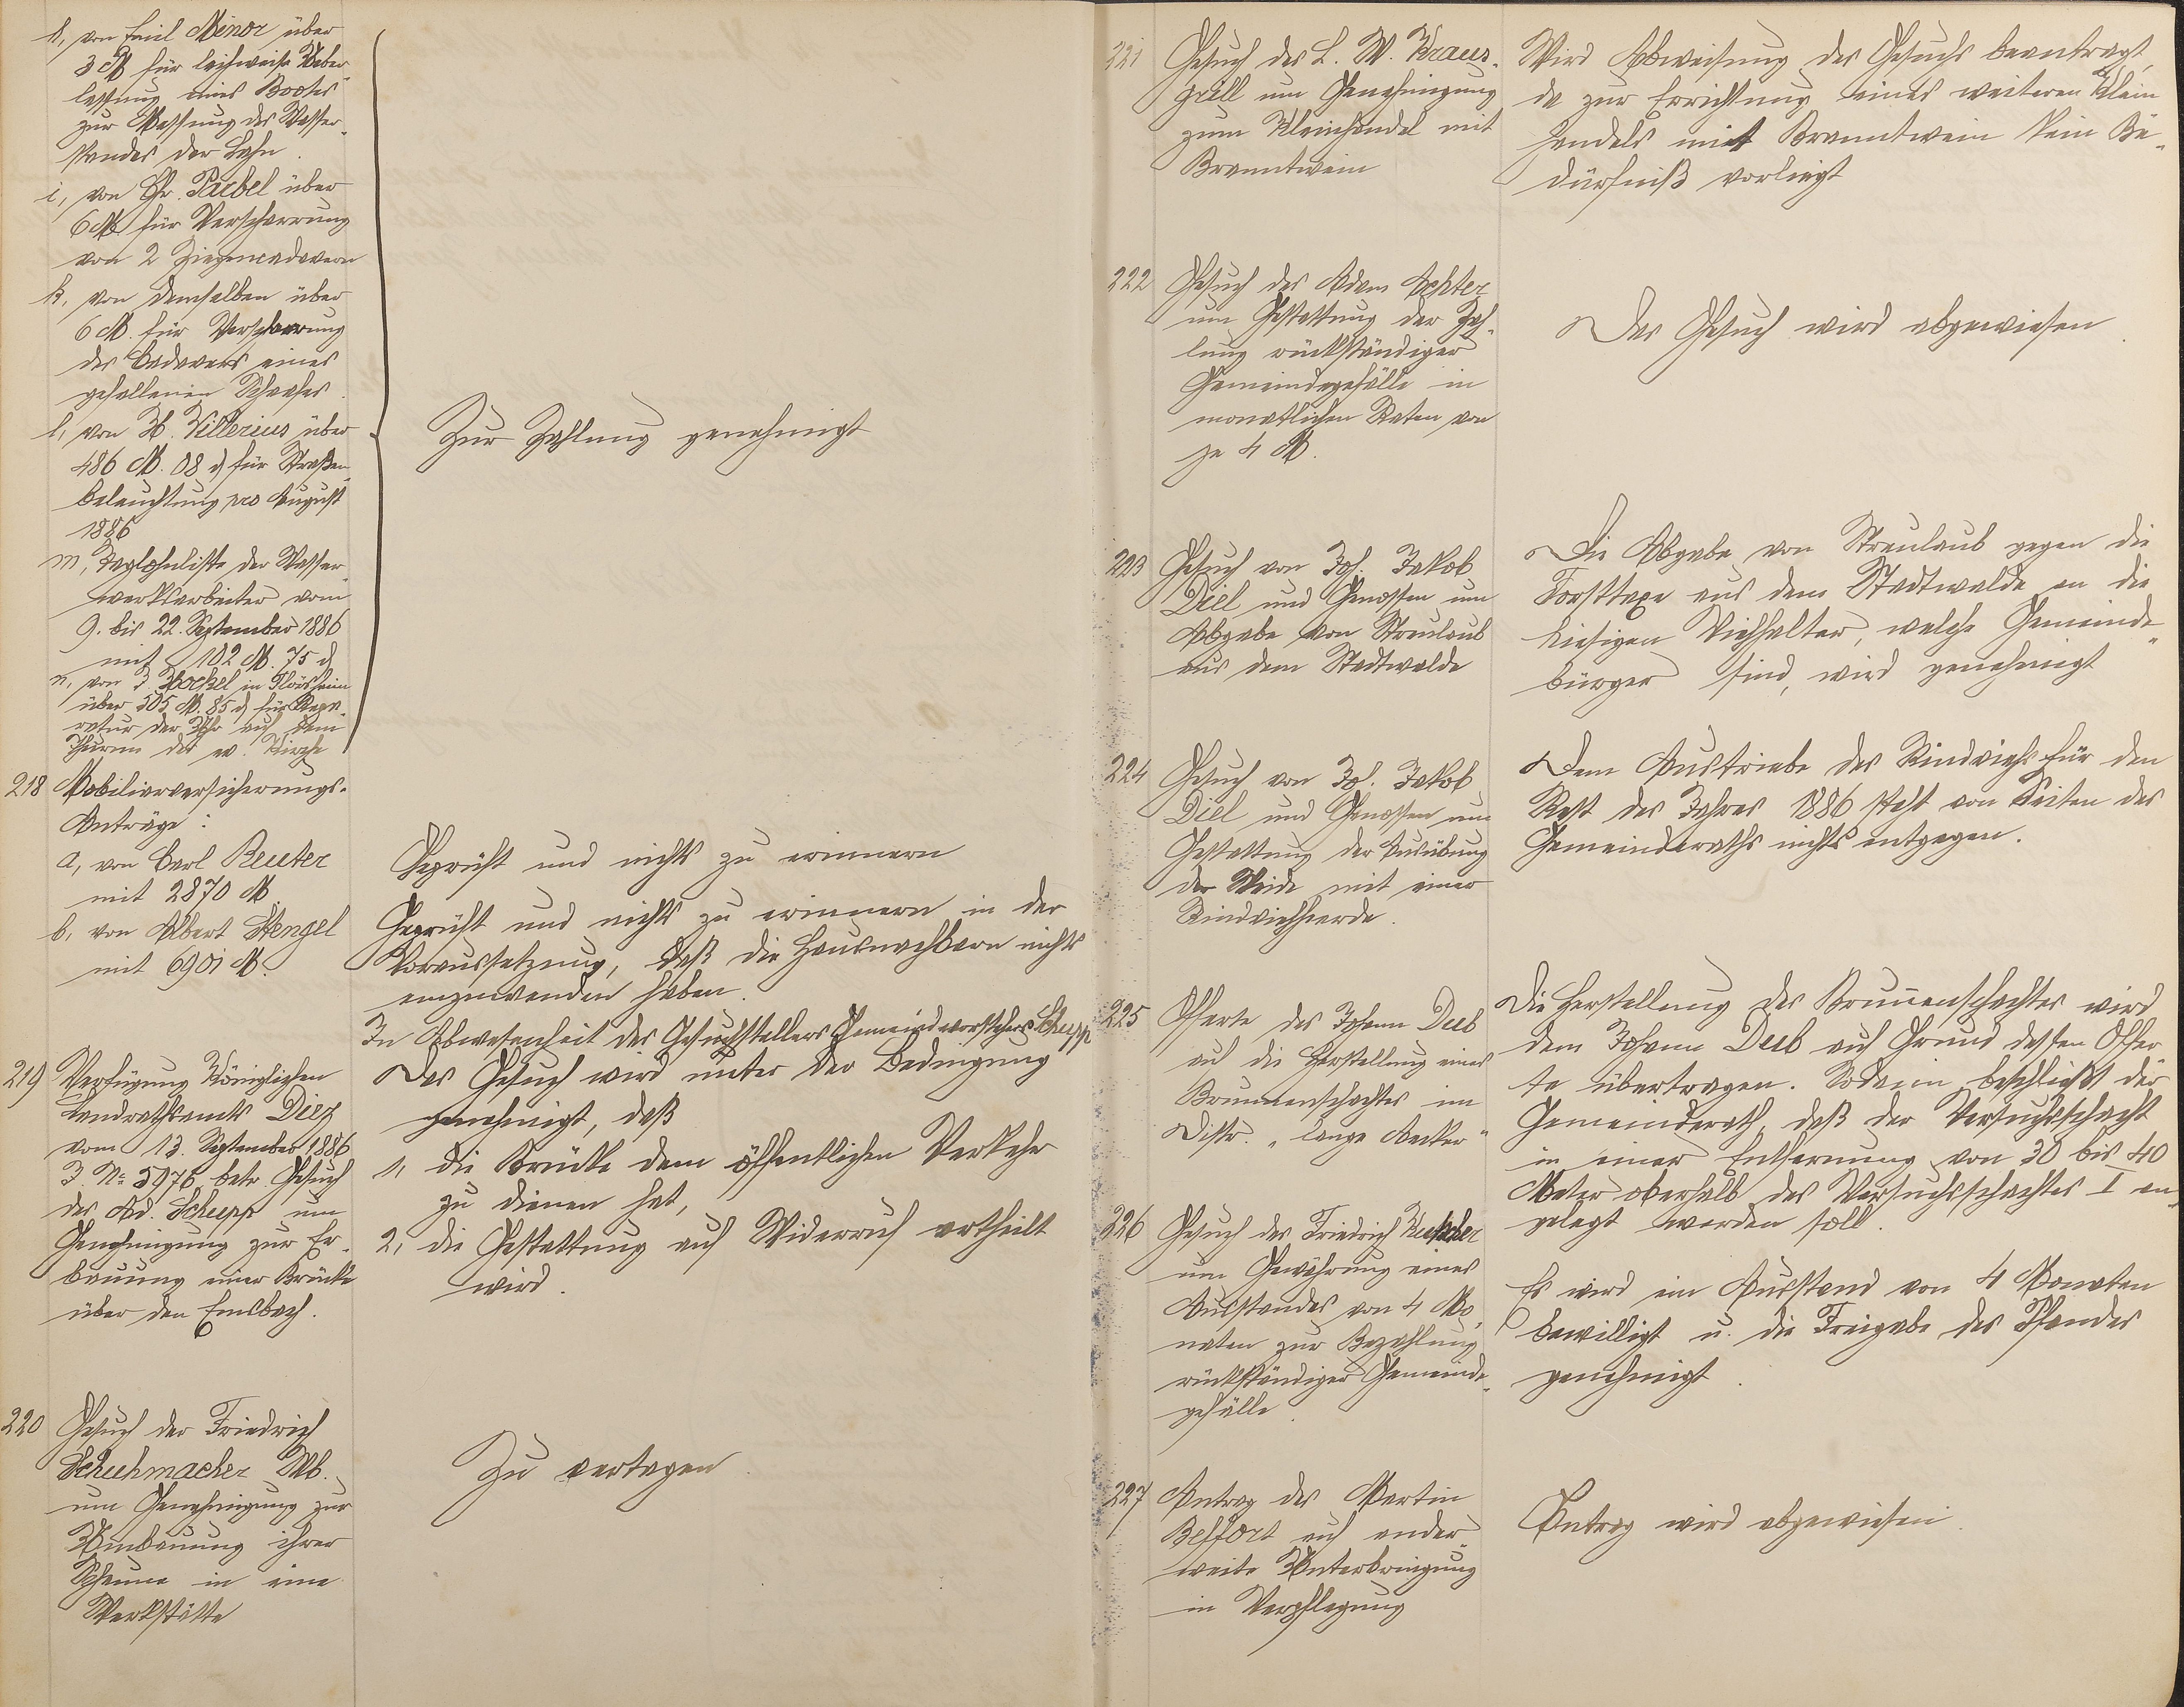 h, von Emil Minor über
3 M für leihweise Ueber-
lassung eines Bootes
zur Messung des Wasser-
standes der Lahn.
i, von Chr. Paebel über
6 M für Verscharrung
von 2 Ziegencadavern
k, von demselben über
6 M. für Verscharrung
des Cadavers eines
gefallenen Schaafes.
l, von H. Villerius über
486 M. 08 d für Straßen-
beleuchtung pro August
1886
m, Taglohnliste der Wasser-
werksarbeiter vom
9. bis 22. September 1886
mit 102 M. 75 d
n, von J. Höckel in Flörsheim
über 305 M. 85 d für Repa-
ratur der Uhr auf dem
Thurm der ev. Kirche
Zur Zahlung genehmigt
218 Mobiliarversicherungs-
Anträge:
a, von Carl Reuter
mit 2870 M.
Geprüft und nichts zu erinnern
b, von Albert Stengel
mit 6901 M.
Geprüft und nichts zu erinnern in der
Voraussetzung, daß die Hausnachbarn nichts
einzuwenden haben.
219 Verfügung Königlichen
Landrathsamts Diez
vom 13. September 1886
J. No 5976 betr. Gesuch
des Ad. Schupp um
Genehmigung zur Er-
bauung einer Brücke
über den Emsbach.
In Abwesenheit des Gesuchstellers Gemeindevorstehers Schupp
Das Gesuch wird unter der Bedingung
genehmigt, daß
1, die Brücke dem öffentlichen Verkehr
zu dienen hat,
2, die Gestattung auf Widerruf ertheilt
wird.
220 Gesuch der Friedrich
Schuhmacher Wb.
um Genehmigung zur
Umbauung ihrer
Scheune in eine
Werkstätte
Zu vertagen
221 Gesuch des L. W. Kraus-
grill um Genehmigung
zum Kleinhandel mit
Branntwein
Wird Abweisung des Gesuchs beantragt,
da zur Errichtung eines weiteren Klein
handels mit Branntwein kein Be-
dürfniß vorliegt
222 Gesuch des Adam Achter
um Gestattung der Zah-
lung rückständiger
Gemeindegefälle in
monatlichen Raten von
je 4 M.
Das Gesuch wird abgewiesen.
223 Gesuch von Joh. Jakob
Diel und Genossen um
Abgabe von Streulaub
aus dem Stadtwalde
Die Abgabe von Streulaub gegen die
Forsttaxe aus dem Stadtwalde an die
hiesigen Viehhalter, welche Gemeinde-
bürger sind, wird genehmigt
224 Gesuch von Joh. Jakob
Diel und Genossen um
Gestattung der Ausübung
der Weide mit einer
Rindviehheerde.
Dem Austriebe des Rindviehs für den
Rest des Jahres 1886 steht von Seiten des
Gemeinderaths nichts entgegen.
225 Offerte des Johann Deeb
auf die Herstellung eines
Brunnenschachtes im
Distr. "lange Aecker"
Die Herstellung des Brunnenschachtes wird
dem Johann Deeb auf Grund dessen Offer-
te übertragen. Sodann beschließt der
Gemeinderath, daß der Versuchsschacht
in einer Entfernung von 30 bis 40
Meter oberhalb des Versuchsschachtes I an-
gelegt werden soll.
226 Gesuch des Friedrich
um Gewährung eines
Ausstandes von 4 Mo-
naten zur Bezahlung
rückständiger Gemeinde-
gefälle.
Es wird ein Ausstand von 4 Monaten
bewilligt u. die Freigabe des Pfandes
genehmigt.
227 Antrag des Martin
Beffort auf ander-
weite Unterbringung
in Verpflegung
Antrag wird abgewiesen.